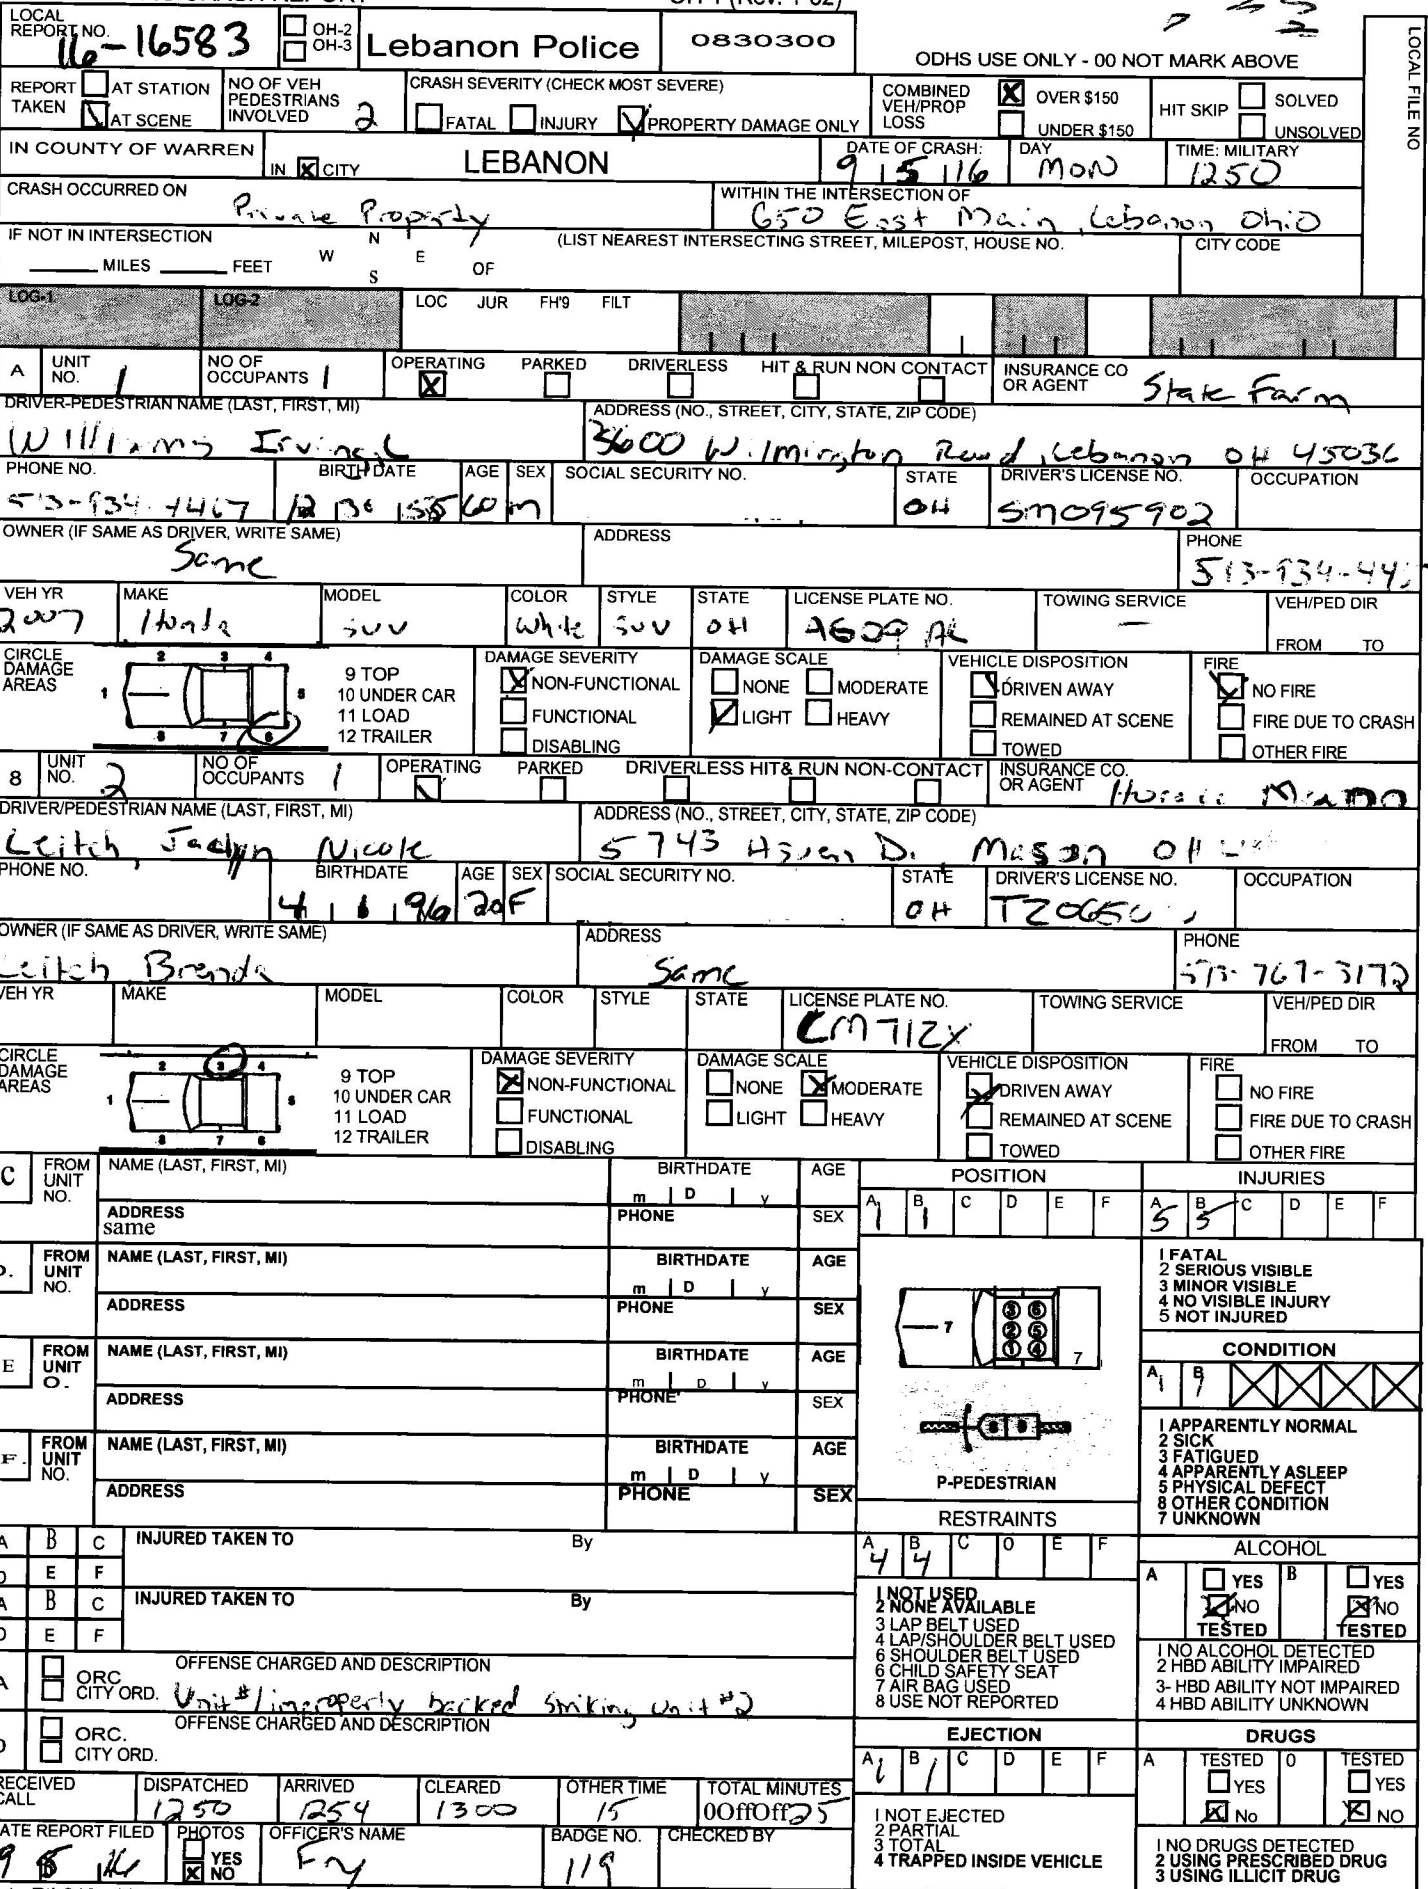 LOCAL REPORT NO. 16-16583 OH-2 OH-3 Lebanon Police 0830300
ODHS USE ONLY - 00 NOT MARK ABOVE
LOCAL FILE NO
REPORT TAKEN AT STATION AT SCENE NO OF VEH PEDESTRIANS INVOLVED 2 CRASH SEVERITY (CHECK MOST SEVERE) FATAL INJURY PROPERTY DAMAGE ONLY COMBINED VEH/PROP LOSS X OVER $150 UNDER $150 HIT SKIP SOLVED UNSOLVED
IN COUNTY OF WARREN IN X CITY LEBANON DATE OF CRASH: 9 5 16 DAY MON TIME: MILITARY 1250
CRASH OCCURRED ON Private Property WITHIN THE INTERSECTION OF 650 East Main, Lebanon Ohio
IF NOT IN INTERSECTION MILES FEET N W E S OF (LIST NEAREST INTERSECTING STREET, MILEPOST, HOUSE NO. CITY CODE
LOG-1 LOG-2 LOC JUR FH'9 FILT
A UNIT NO. 1 NO OF OCCUPANTS 1 OPERATING X PARKED DRIVERLESS HIT & RUN NON CONTACT INSURANCE CO OR AGENT State Farm
DRIVER-PEDESTRIAN NAME (LAST, FIRST, MI) Williams Irving L ADDRESS (NO., STREET, CITY, STATE, ZIP CODE) 3600 Wilmington Road, Lebanon OH 45036
PHONE NO. BIRTH DATE AGE 60 SEX M SOCIAL SECURITY NO. STATE OH DRIVER'S LICENSE NO. SM095902 OCCUPATION
OWNER (IF SAME AS DRIVER, WRITE SAME) Same ADDRESS PHONE
VEH YR 2007 MAKE Honda MODEL SUV COLOR White STYLE SUV STATE OH LICENSE PLATE NO. TOWING SERVICE — VEH/PED DIR FROM TO
CIRCLE DAMAGE AREAS 1 2 3 4 5 6 7 8 9 TOP 10 UNDER CAR 11 LOAD 12 TRAILER DAMAGE SEVERITY NON-FUNCTIONAL FUNCTIONAL DISABLING DAMAGE SCALE NONE MODERATE LIGHT HEAVY VEHICLE DISPOSITION DRIVEN AWAY REMAINED AT SCENE TOWED FIRE NO FIRE FIRE DUE TO CRASH OTHER FIRE
8 UNIT NO. 2 NO OF OCCUPANTS 1 OPERATING PARKED DRIVERLESS HIT& RUN NON-CONTACT INSURANCE CO. OR AGENT
DRIVER/PEDESTRIAN NAME (LAST, FIRST, MI) Leitch, Jaclyn Nicole ADDRESS (NO., STREET, CITY, STATE, ZIP CODE) 5743 Mason OH
PHONE NO. BIRTHDATE 4 1 1 96 AGE 20 SEX F SOCIAL SECURITY NO. STATE OH DRIVER'S LICENSE NO. OCCUPATION
OWNER (IF SAME AS DRIVER, WRITE SAME) Leitch Brenda ADDRESS Same PHONE 513-767-3172
VEH YR MAKE MODEL COLOR STYLE STATE LICENSE PLATE NO. TOWING SERVICE VEH/PED DIR FROM TO
CIRCLE DAMAGE AREAS 1 2 3 4 5 6 7 8 9 TOP 10 UNDER CAR 11 LOAD 12 TRAILER DAMAGE SEVERITY NON-FUNCTIONAL FUNCTIONAL DISABLING DAMAGE SCALE NONE MODERATE LIGHT HEAVY VEHICLE DISPOSITION DRIVEN AWAY REMAINED AT SCENE TOWED FIRE NO FIRE FIRE DUE TO CRASH OTHER FIRE
C FROM UNIT NO. NAME (LAST, FIRST, MI) BIRTHDATE m D y AGE
ADDRESS same PHONE SEX
D. FROM UNIT NO. NAME (LAST, FIRST, MI) BIRTHDATE m D y AGE
ADDRESS PHONE SEX
E FROM UNIT O. NAME (LAST, FIRST, MI) BIRTHDATE m D y AGE
ADDRESS PHONE' SEX
F. FROM UNIT NO. NAME (LAST, FIRST, MI) BIRTHDATE m D y AGE
ADDRESS PHONE SEX
POSITION
A 1 B 1 C D E F
7 3 6 2 5 1 4 7
P-PEDESTRIAN
INJURIES
A 5 B 5 C D E F
I FATAL
2 SERIOUS VISIBLE
3 MINOR VISIBLE
4 NO VISIBLE INJURY
5 NOT INJURED
CONDITION
A 1 B 1
I APPARENTLY NORMAL
2 SICK
3 FATIGUED
4 APPARENTLY ASLEEP
5 PHYSICAL DEFECT
8 OTHER CONDITION
7 UNKNOWN
A B C INJURED TAKEN TO By
D E F
A B C INJURED TAKEN TO By
D E F
RESTRAINTS
A 4 B 4 C 0 E F
I NOT USED
2 NONE AVAILABLE
3 LAP BELT USED
4 LAP/SHOULDER BELT USED
6 SHOULDER BELT USED
6 CHILD SAFETY SEAT
7 AIR BAG USED
8 USE NOT REPORTED
ALCOHOL
A YES NO TESTED B YES NO TESTED
I NO ALCOHOL DETECTED
2 HBD ABILITY IMPAIRED
3- HBD ABILITY NOT IMPAIRED
4 HBD ABILITY UNKNOWN
A ORC CITY ORD. OFFENSE CHARGED AND DESCRIPTION Unit #1 improperly backed striking unit #2
ORC. CITY ORD. OFFENSE CHARGED AND DESCRIPTION
EJECTION
A 1 B 1 C D E F
I NOT EJECTED
2 PARTIAL
3 TOTAL
4 TRAPPED INSIDE VEHICLE
DRUGS
A TESTED YES No 0 TESTED YES NO
I NO DRUGS DETECTED
2 USING PRESCRIBED DRUG
3 USING ILLICIT DRUG
RECEIVED CALL DISPATCHED 1250 ARRIVED 1254 CLEARED 1300 OTHER TIME 15 TOTAL MINUTES 0OffOff25
DATE REPORT FILED 9 5 16 PHOTOS YES X NO OFFICER'S NAME Fry BADGE NO. 119 CHECKED BY